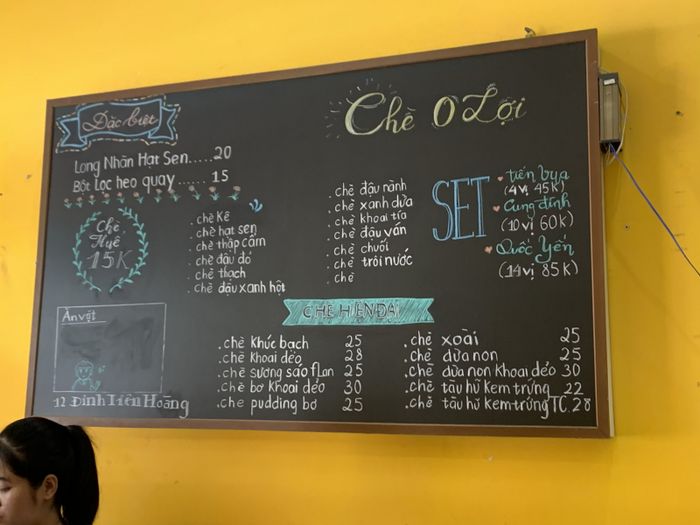 Chè O Lợi
Đặc biệt
Long Nhãn Hạt Sen.....20
Bột Lọc heo quay......15
Chè
Huế
15K
.chè Kê
.chè hạt sen
.chè thập cẩm
.chè đậu đỏ
.chè thạch
.chè đậu xanh hột
.chè đậu nành
.chè xanh dừa
.chè khoai tía
.chè đậu ván
.chè chuối
.chè trôi nước
.chè
SET
tiến bựa
(4 vị 45K)
Cung đình
(10 vị 60K)
Quốc Yến
(14 vị 85K)
CHÈ HIỆN ĐẠI
.chè khúc bạch 25
.chè khoai dẻo 28
.chè sương sáo flan 25
.chè bơ khoai dẻo 30
.chè pudding bơ 25
.chè xoài 25
.chè dừa non 25
.chè dừa non khoai dẻo 30
.chè tàu hũ kem trứng 22
.chè tàu hũ kem trứng TC.28
Ăn vặt
12 Đinh Tiên Hoàng